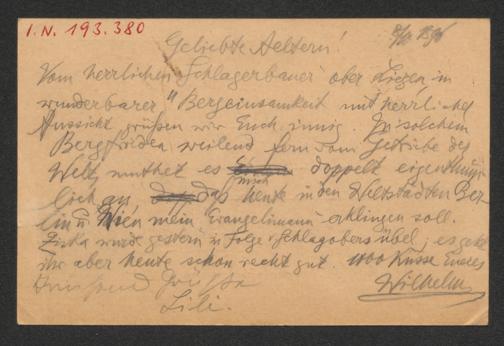 I.N. 193.380
Geliebte Aeltern!
Vom herrlichen Schlagerbauer ober in
wunderbarer Bergeinsamkeit mit herrlicher
Aussicht grüßen wir Euch innig. In solchem
Bergfrieden weilend fern vom Getriebe der
Welt, muthet es mich doppelt eigenthüm-
lich an, das heute in den Weltstädten Ber-
lin u Wien mein Evangelimann erklingen soll.
wurde gestern in Folge Schlagobers übel, es geht
ihr aber heute schon recht gut. 1100 Küsse Eures
Wilhelm
Tausend Grüße
Lili.